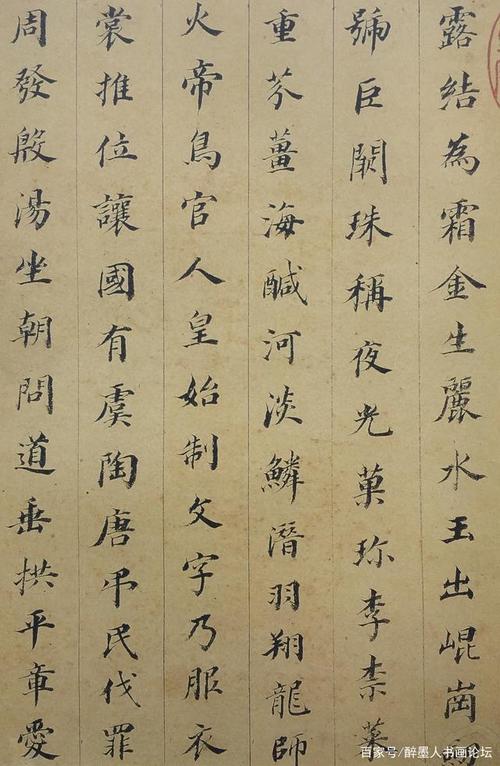 露結為霜金生麗水玉出崐崗
號巨闕珠稱夜光菓珎李柰菜
重芥薑海醎河淡鱗潛羽翔龍師
火帝鳥官人皇始制文字乃服衣
裳推位讓國有虞陶唐吊民伐罪
周發殷湯坐朝問道垂拱平章愛
百家号/醉墨人书画论坛